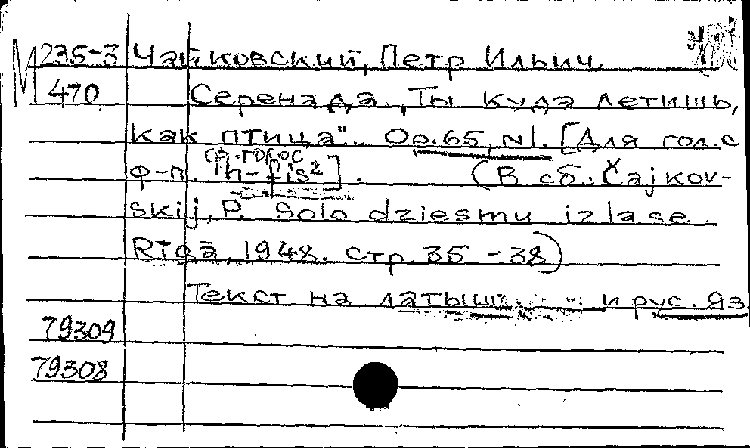 М 235-3 Чайковский, Петр Ильич.
470 Серенада „Ты куда летишь,
как птица". Op. 65, N1. [Для гол. с
ср. голос
ф-п. h-fis²]. (В сб. Čajkov-
skij, P. Solo dziesmu izlase.
Rīgā, 1948. стр. 35 - 38)
Текст на латыш и рус. яз
79309
79308